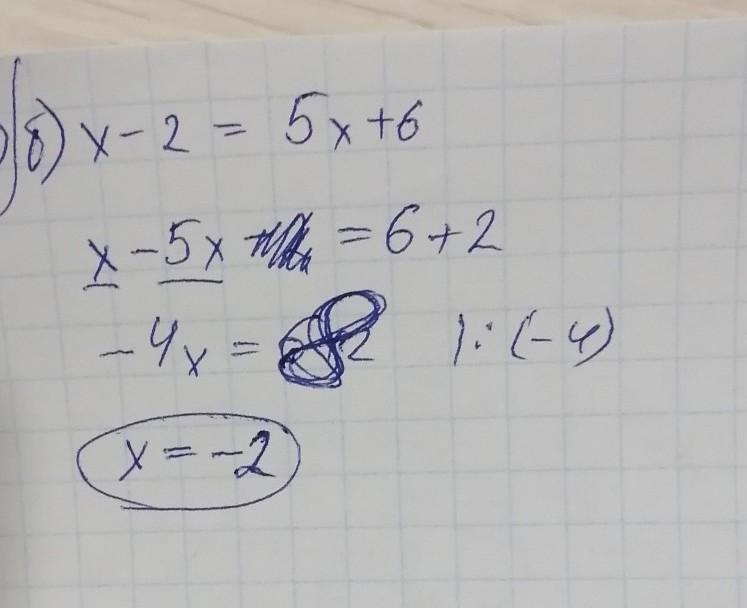 б) x - 2 = 5x + 6
x - 5x = 6 + 2
-4x = 8 |: (-4)
x = -2